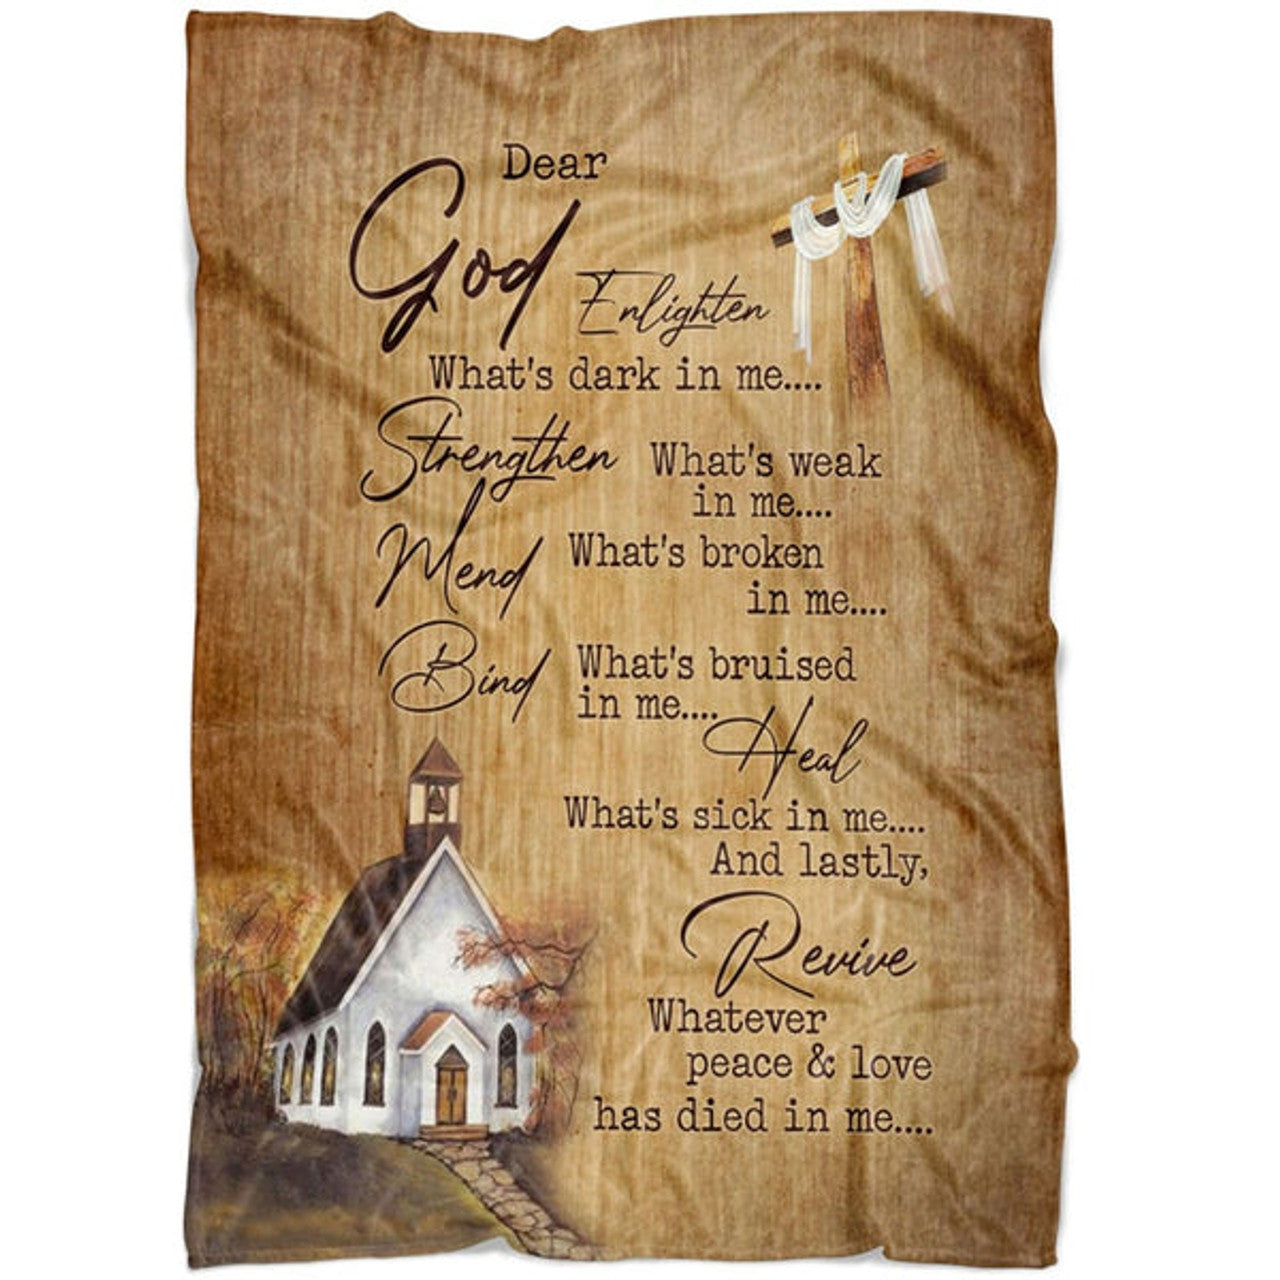 Dear
God Enlighten
What's dark in me....
Strengthen What's weak
in me....
Mend What's broken
in me....
Bind What's bruised
in me....
Heal
What's sick in me....
And lastly,
Revive
Whatever
peace & love
has died in me....